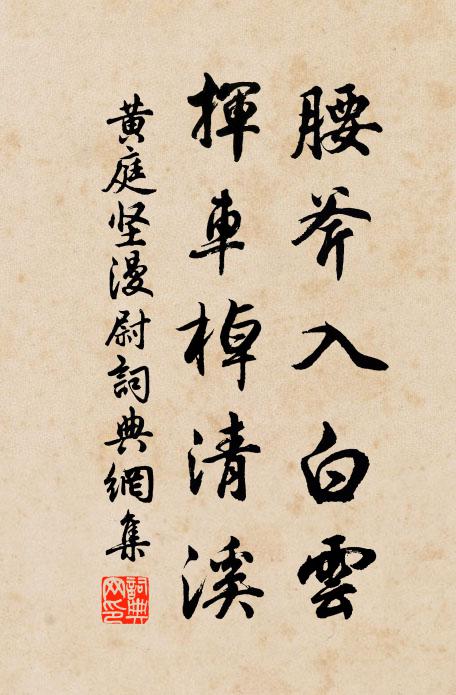 腰斧入白雲
揮車棹清溪
黄庭坚漫尉詞典網集
詞典網印